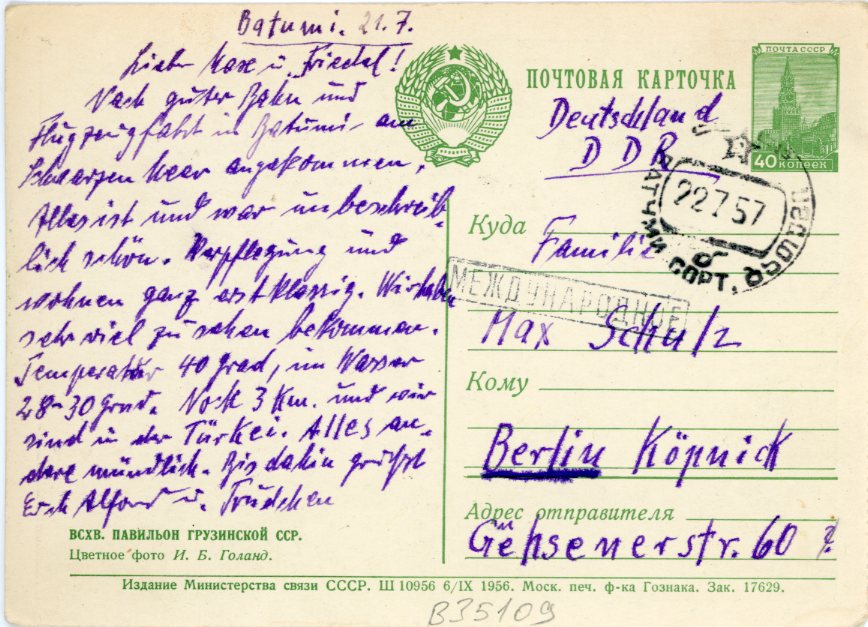 Batumi. 21.7.
Lieber Max u. Friedel!
Nach guter Bahn und
Flugzeugfahrt in Batumi am
Schwarzen Meer angekommen.
Alles ist und war unbeschreib-
lich schön. Verpflegung und
wohnen ganz erstklassig. Wir haben
sehr viel zu sehen bekommen.
Temperatur 40 Grad, im Wasser
28-30 Grad. Noch 3 Km. und wir
sind in der Türkei. Alles an-
dere mündlich. Bis dahin grüßt
Euch Alfred u. Trudchen
ВСХВ. ПАВИЛЬОН ГРУЗИНСКОЙ ССР.
Цветное фото И. Б. Голанд.
ПОЧТОВАЯ КАРТОЧКА
ПОЧТА СССР
40 КОПЕЕК
Deutschland
DDR
22 7 57
БАТУМИ СОРТ.
МЕЖДУНАРОДНОЕ
Куда Familie
Max Schulz
Кому
Berlin Köpnick
Адрес отправителя
Gehsenerstr. 60
Издание Министерства связи СССР. Ш 10956 6/IX 1956. Моск. печ. ф-ка Гознака. Зак. 17629.
B35109